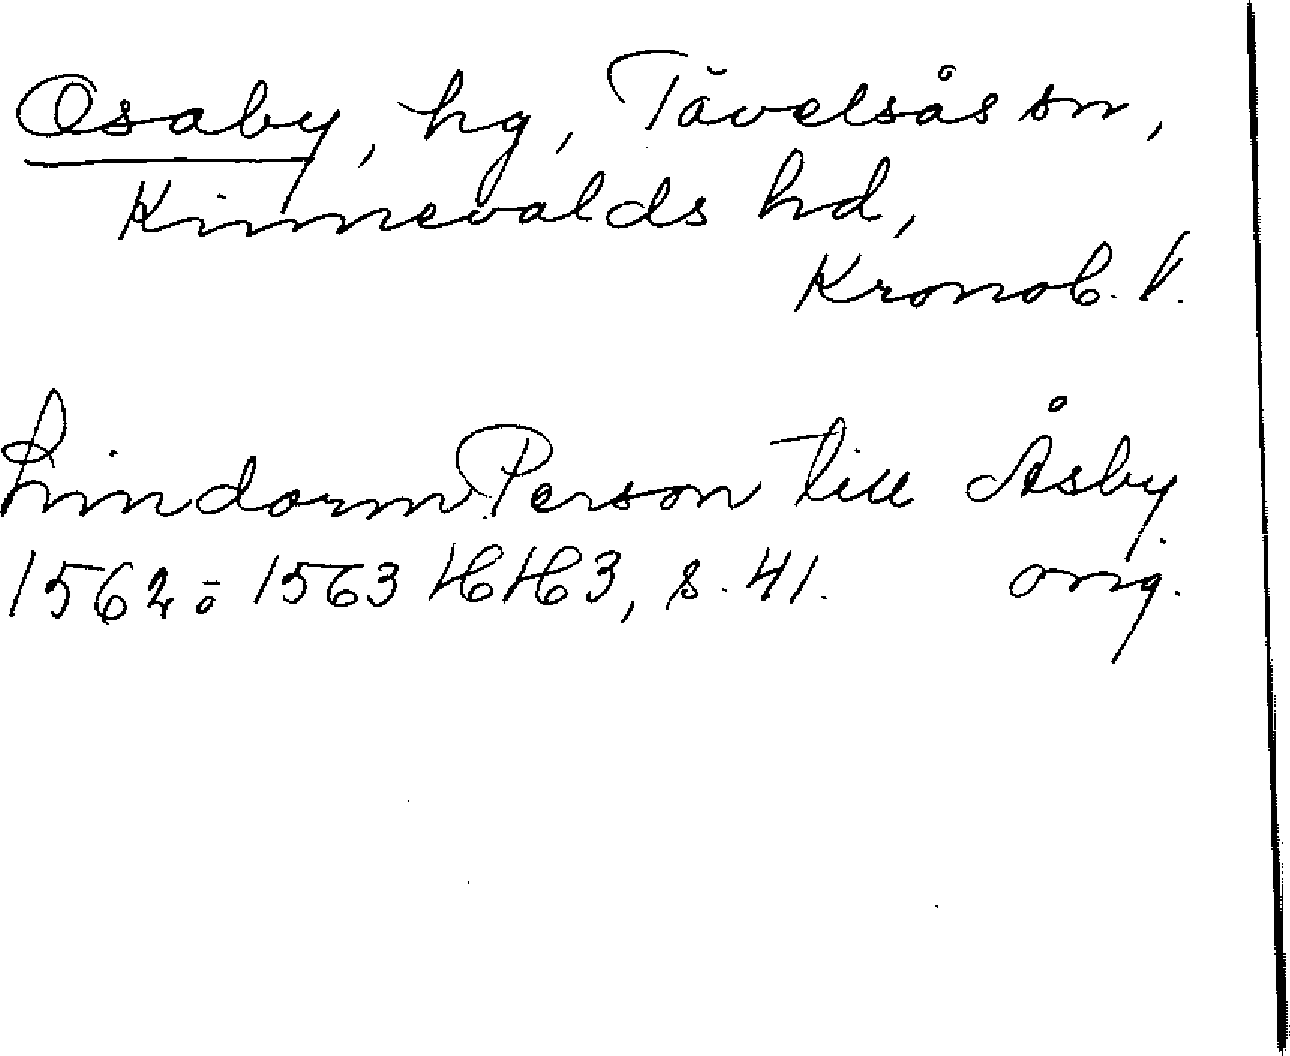 Osaby, hg, Tävelsås sn,
Kinnevalds hd,
Kronob. l.
Lindorm Person till Åsby
1562-1563 HH3, s. 41. orig.